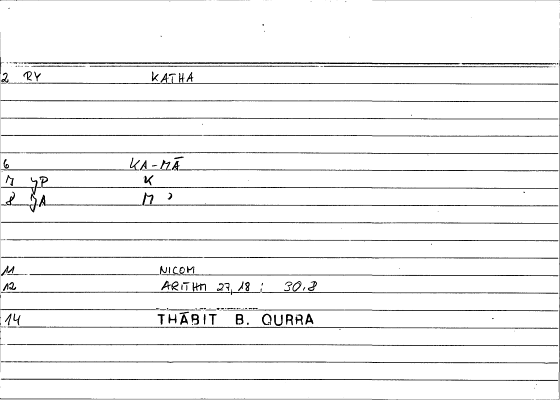 2 RY KATHA
6 KA-MĀ
7 YP K
8 YA M
11 NICOM
12 ARITHM 27,18 : 30,8
14 THĀBIT B. QURRA